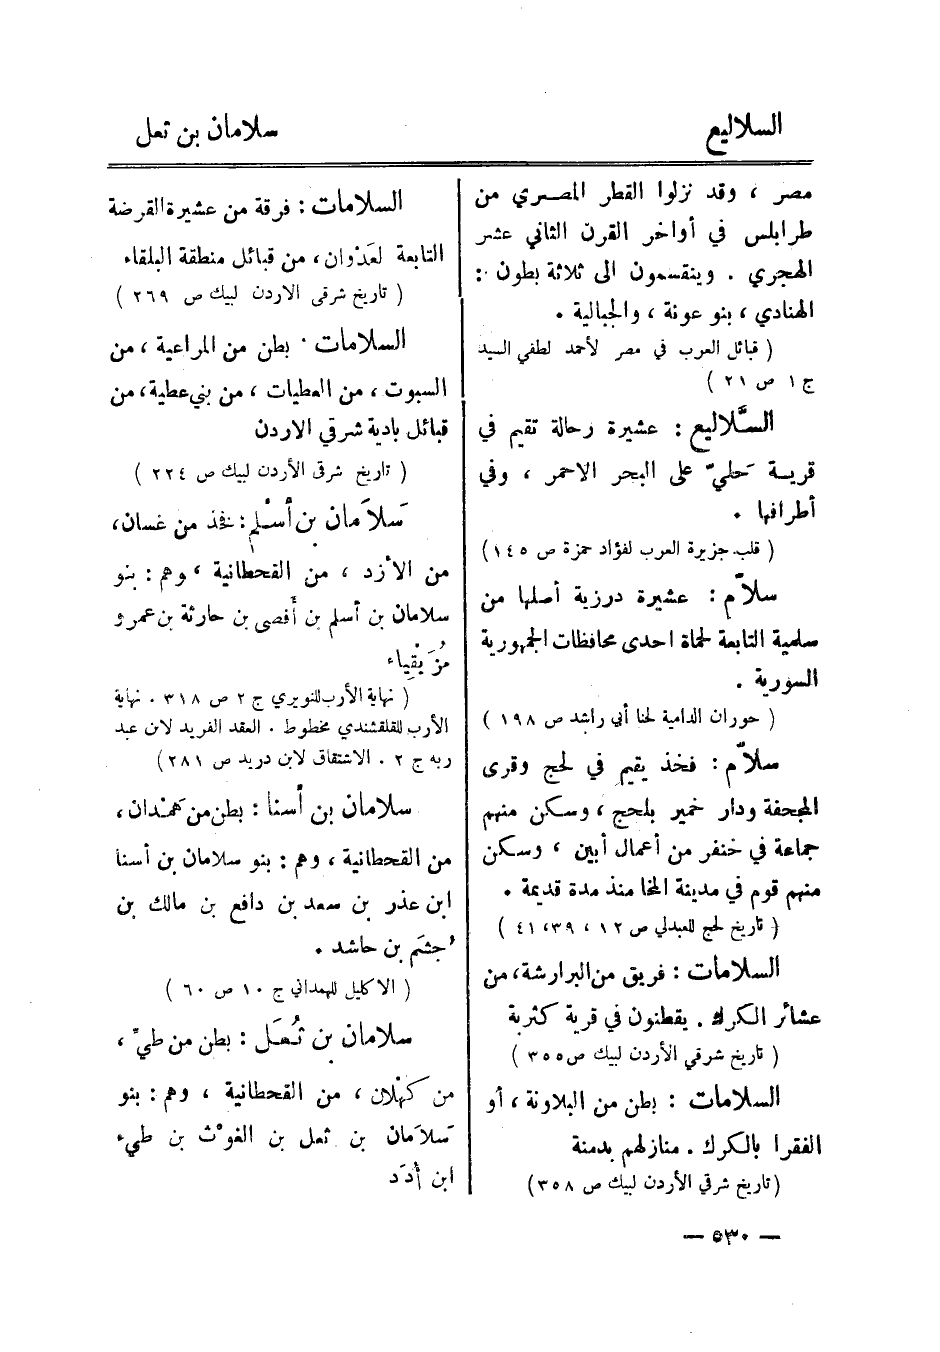 السلاليع
سلامان بن ثعل
مصر ، وقد نزلوا القطر المصري من
طرابلس في أواخر القرن الثاني عشر
الهجري . وينقسمون الى ثلاثة بطون :
الهنادي ، بنو عونة ، والجبالية .
( قبائل العرب في مصر لأحمد لطفي السيد
ج ١ ص ٢١ )
السَّلاليع : عشيرة رحالة تقيم في
قرية حَلْيّ على البحر الاحمر ، وفي
أطرافها .
( قلب جزيرة العرب لفؤاد حمزة ص ١٤٥ )
سلاّم : عشيرة درزية أصلها من
سلمية التابعة لحماة احدى محافظات الجمهورية
السورية .
( حوران الدامية لحنا أبي راشد ص ١٩٨ )
سلاّم : فخذ يقيم في لحج وقرى
المجحفة ودار خمير بلحج ، وسكن منهم
جماعة في خنفر من أعمال أبين ، وسكن
منهم قوم في مدينة المخا منذ مدة قديمة .
( تاريخ لحج للعبدلي ص ١٢ ، ٣٩ ، ٤١ )
السلامات : فريق من البرارشة ، من
عشائر الكرك . يقطنون في قرية كثربة
( تاريخ شرقي الأردن لبيك ص ٣٥٥ )
السلامات : بطن من البلاونة ، أو
الفقرا بالكرك . منازلهم بدمنة
( تاريخ شرقي الأردن لبيك ص ٣٥٨ )
السلامات : فرقة من عشيرة القرضة
التابعة لعَدْوان ، من قبائل منطقة البلقاء
( تاريخ شرقي الاردن لبيك ص ٢٦٩ )
السلامات . بطن من المراعية ، من
السبوت ، من العطيات ، من بني عطية ، من
قبائل بادية شرقي الاردن
( تاريخ شرقي الأردن لبيك ص ٢٢٤ )
سَلاَمان بن أسْلُم : فخذ من غسان ،
من الأزد ، من القحطانية ، وهم : بنو
سلامان بن أسلم بن أَفصى بن حارثة بن عمرو
مُزَيْقِياء
( نهاية الأرب للنويري ج ٢ ص ٣١٨ . نهاية
الأرب للقلقشندي مخطوط . العقد الفريد لابن عبد
ربه ج ٢ . الاشتقاق لابن دريد ص ٢٨١ )
سلامان بن أسنا : بطن من هَمْدان ،
من القحطانية ، وهم : بنو سلامان بن أسنا
ابن عذر بن سعد بن دافع بن مالك بن
جُشَم بن حاشد .
( الاكليل للهمداني ج ١٠ ص ٦٠ )
سلامان بن ثُعَل : بطن من طيّ ،
من كَهْلان ، من القحطانية ، وهم : بنو
سَلاَمان بن ثعل بن الغوْث بن طيء
ابن أُدَد
— ٥٣٠ —